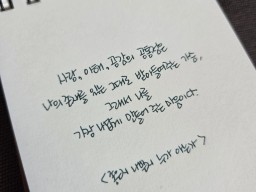 사랑, 이해, 공감의 공통점은
나의 존재를 있는 그대로 받아들여주는 가슴,
그래서 나를
가장 나답게 만들어 주는 마음이다.